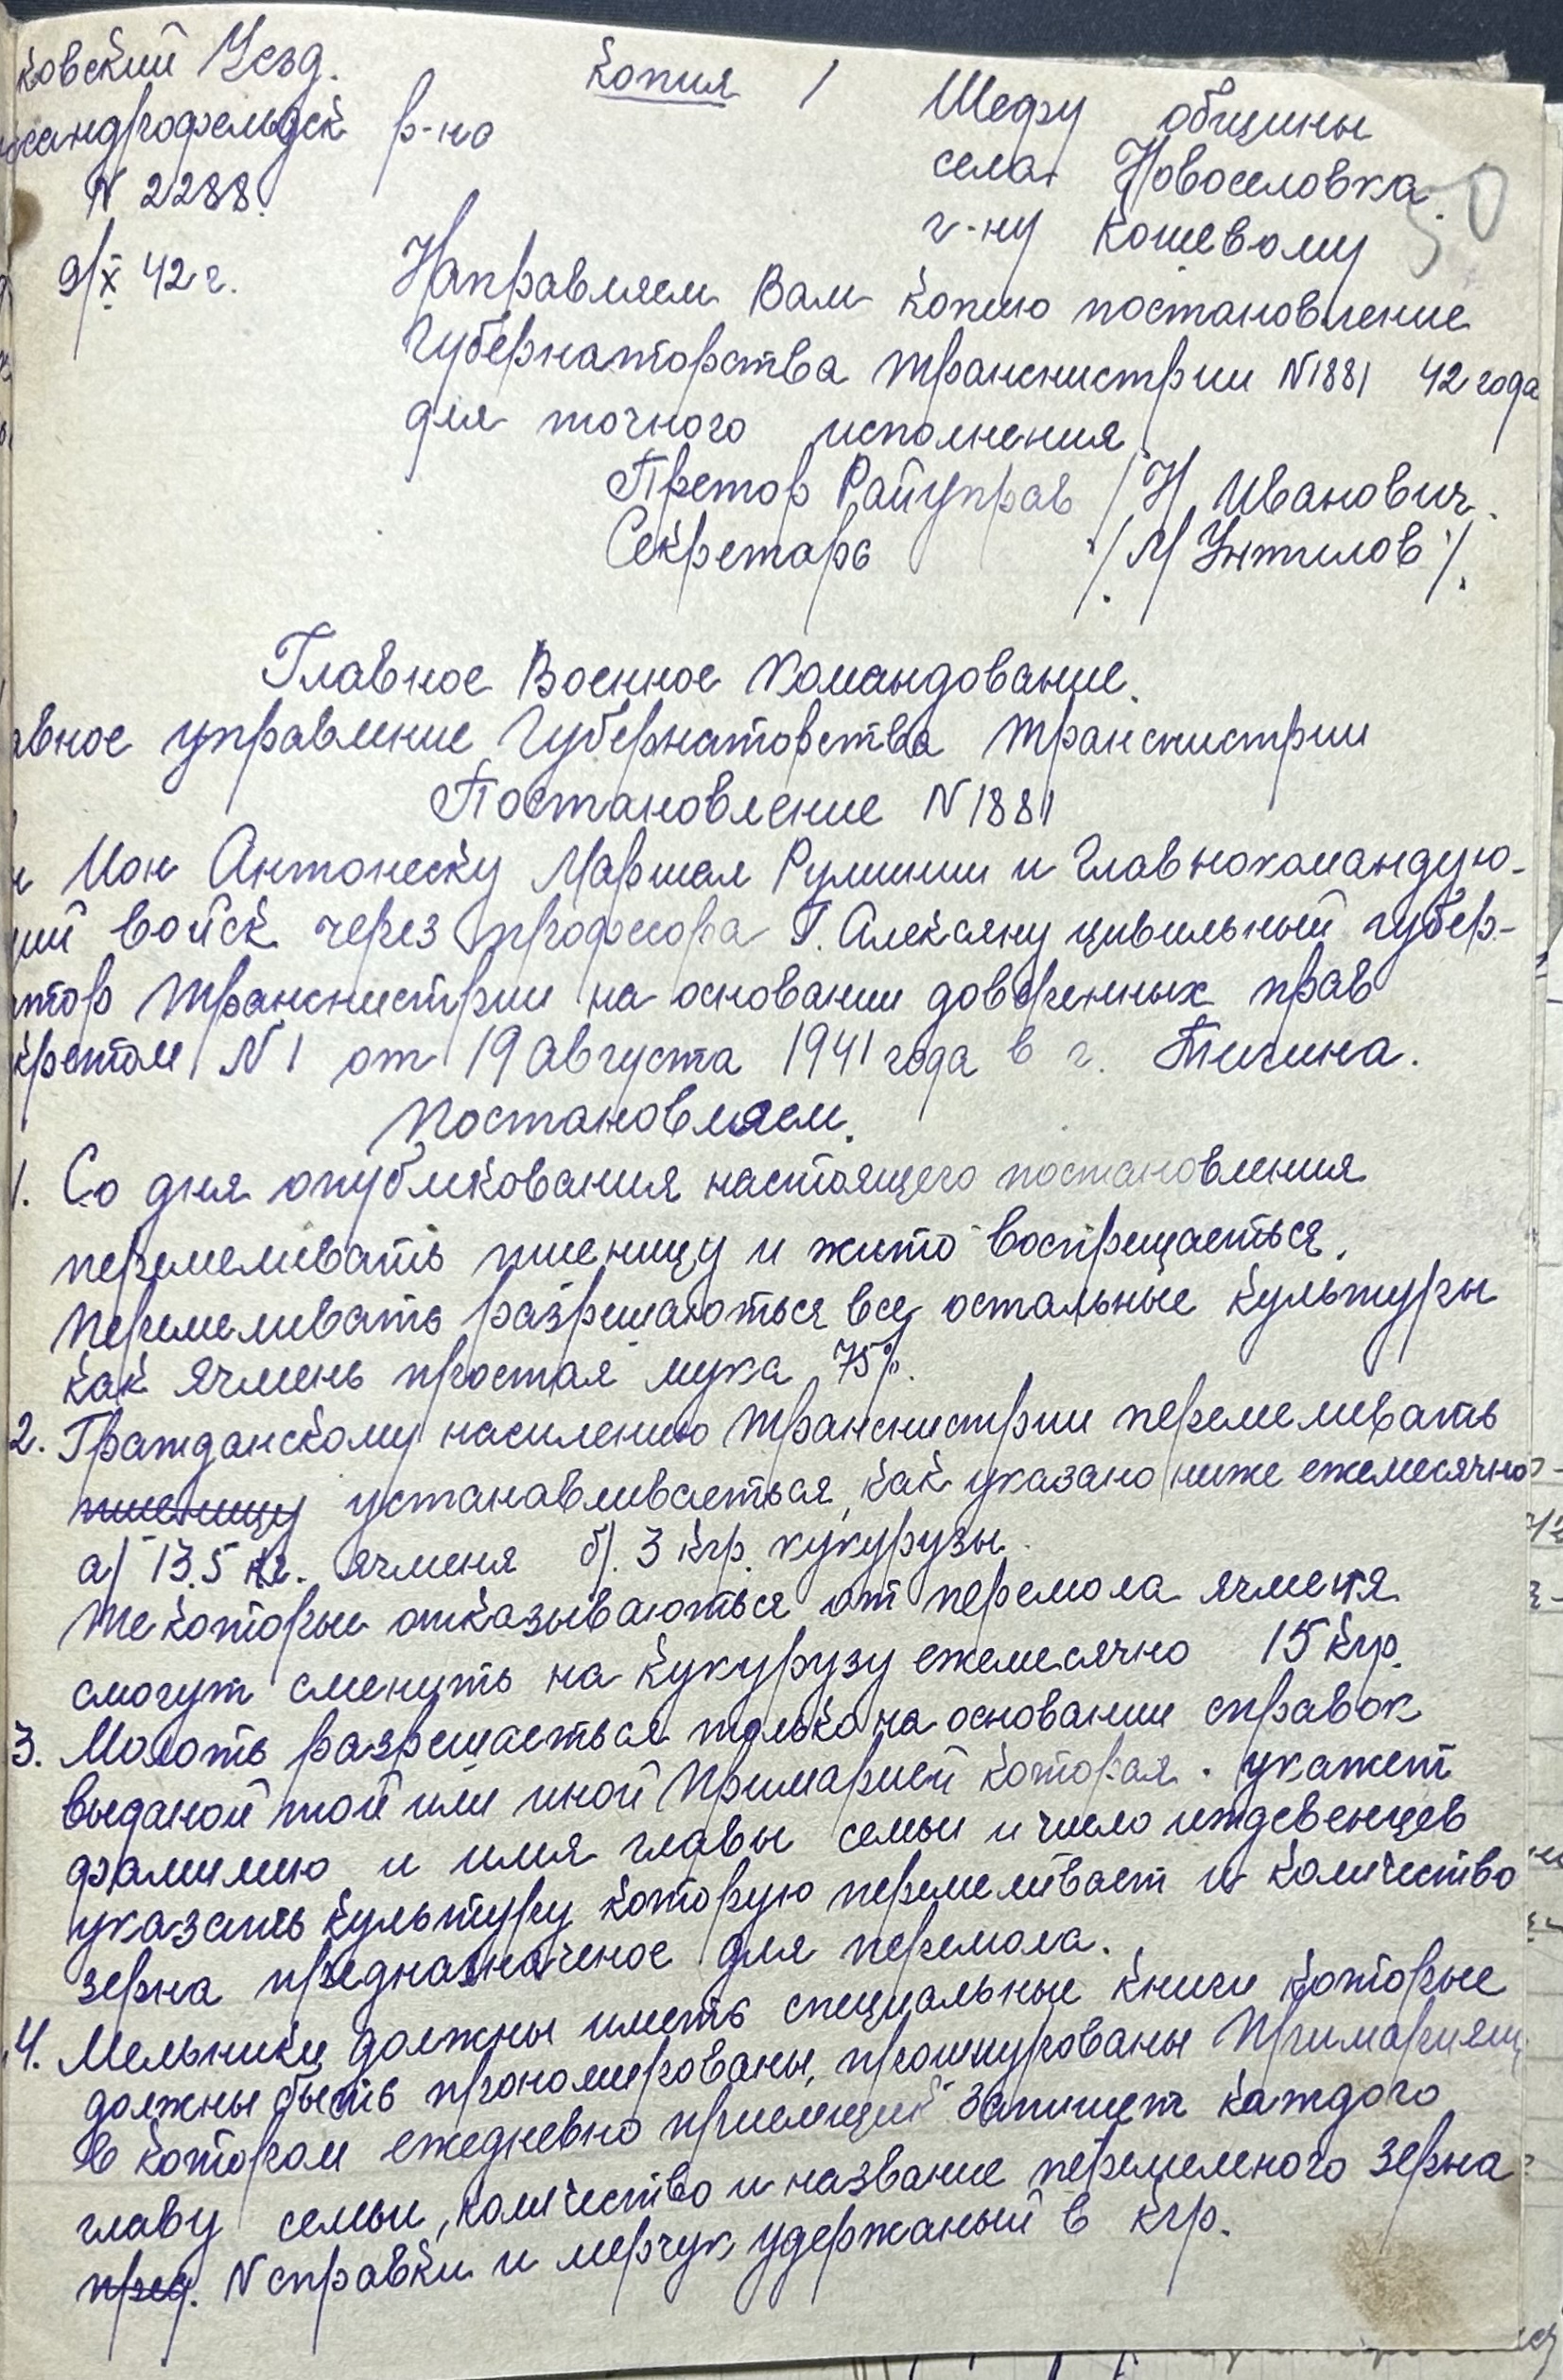 ковский Уезд.
копия 1
Шефу общины
сандрофельдск р-но
села Новоселовка.
N 2288.
50
г-ну Кошевому
9/X 42 г.
Направляем Вам копию постановление
Губернаторства транснистрии N1881 42 года
для точного исполнения
Претор Райуправ / Н Иванович.
Секретарь /М Унтилов/.
Главное Военное командование.
авное управление Губернаторства транснистрии
Постановление N1881
Ион Антонеску Маршал Румынии и Главнокомандую-
щий войск через професора Г. Алексяну цивильный губер-
атор транснистрии на основании доверенных прав
кретом N1 от 19 августа 1941 года в г. Тигина.
Постановляем.
1. Со дня опубликования настоящего постановления
перемеливать пшеницу и жито воспрещаеться.
перемеливать разрешаються все остальные культуры
как ячмень простая мука 75%.
2. Гражданскому населению транснистрии перемеливать
пшеницу устанавливаеться как указано ниже ежемесячно
а) 13.5 кг. ячменя б). 3 кгр. кукурузы.
те которые отказываються от перемола ячменя
смогут сменить на кукурузу ежемесячно 15 кгр.
3. Молоть разрешаеться только на основании справок
выданой той или иной Примарией которая. укажет
фамилию и имя главы семьи и число иждевенцев
указать культуру которую перемеливает и количество
зерна предназначеное для перемола.
4. Мельники должны иметь специальные книги которые
должны быть прономированы, прошнурованы Примариям,
в котором ежедневно приемщик запишет каждого
главу семьи, количество и название перемеленого зерна
пред. N справки и мерчук удержаный в кгр.